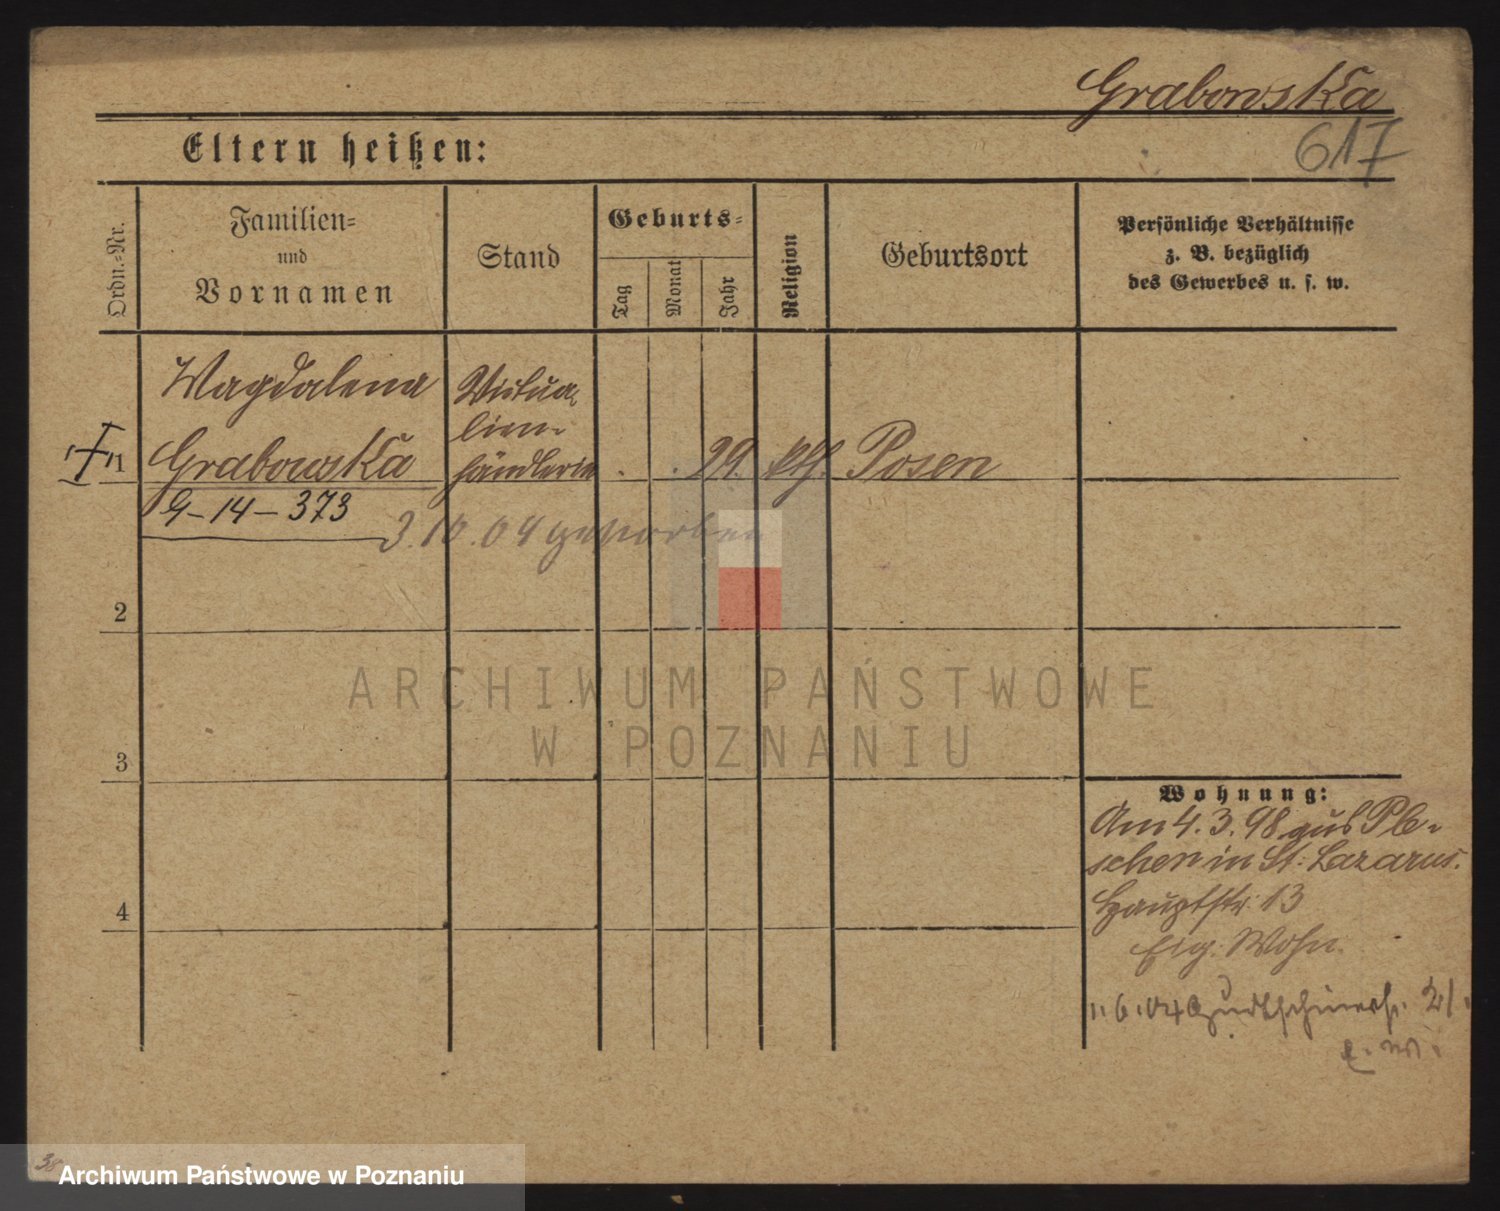 Grabowska
617
Eltern heißen:
Ordn.-Nr.
Familien-
und
Vornamen
Stand
Geburts-
Tag
Monat
Jahr
Religion
Geburtsort
Persönliche Verhältnisse
z. B. bezüglich
des Gewerbes u. s. w.
Magdalena
Grabowska
Victua-
lien-
händlerin
. . 29. kth. Posen
1
G-14-373
3.10.04 gestorben
2
3
4
ARCHIWUM PAŃSTWOWE
W POZNANIU
Wohnung:
Am 4.3.98 aus Ple-
schen in St. Lazarus.
Hauptstr. 13
Eig. Wohn.
1.6.04 21
e. W.
38
Archiwum Państwowe w Poznaniu